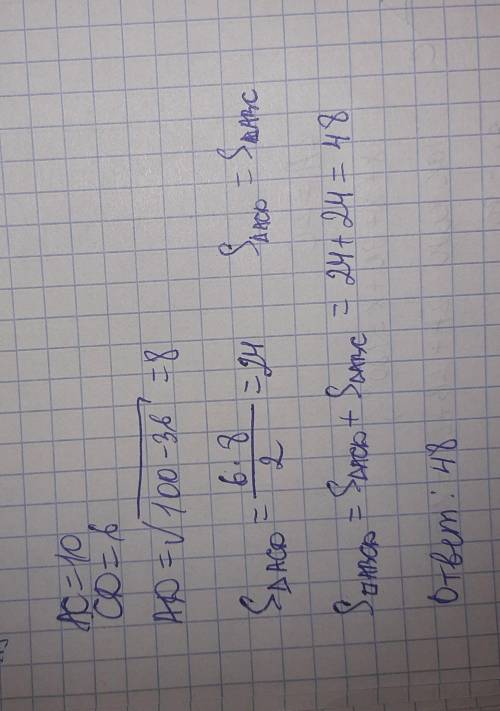 AC=10
CD=6
AD=√100-36=8
S△ACD=6·8/2=24 S△ACD=S△ABC
S▱ABCD=S△ACD+S△ABC=24+24=48
Ответ: 48